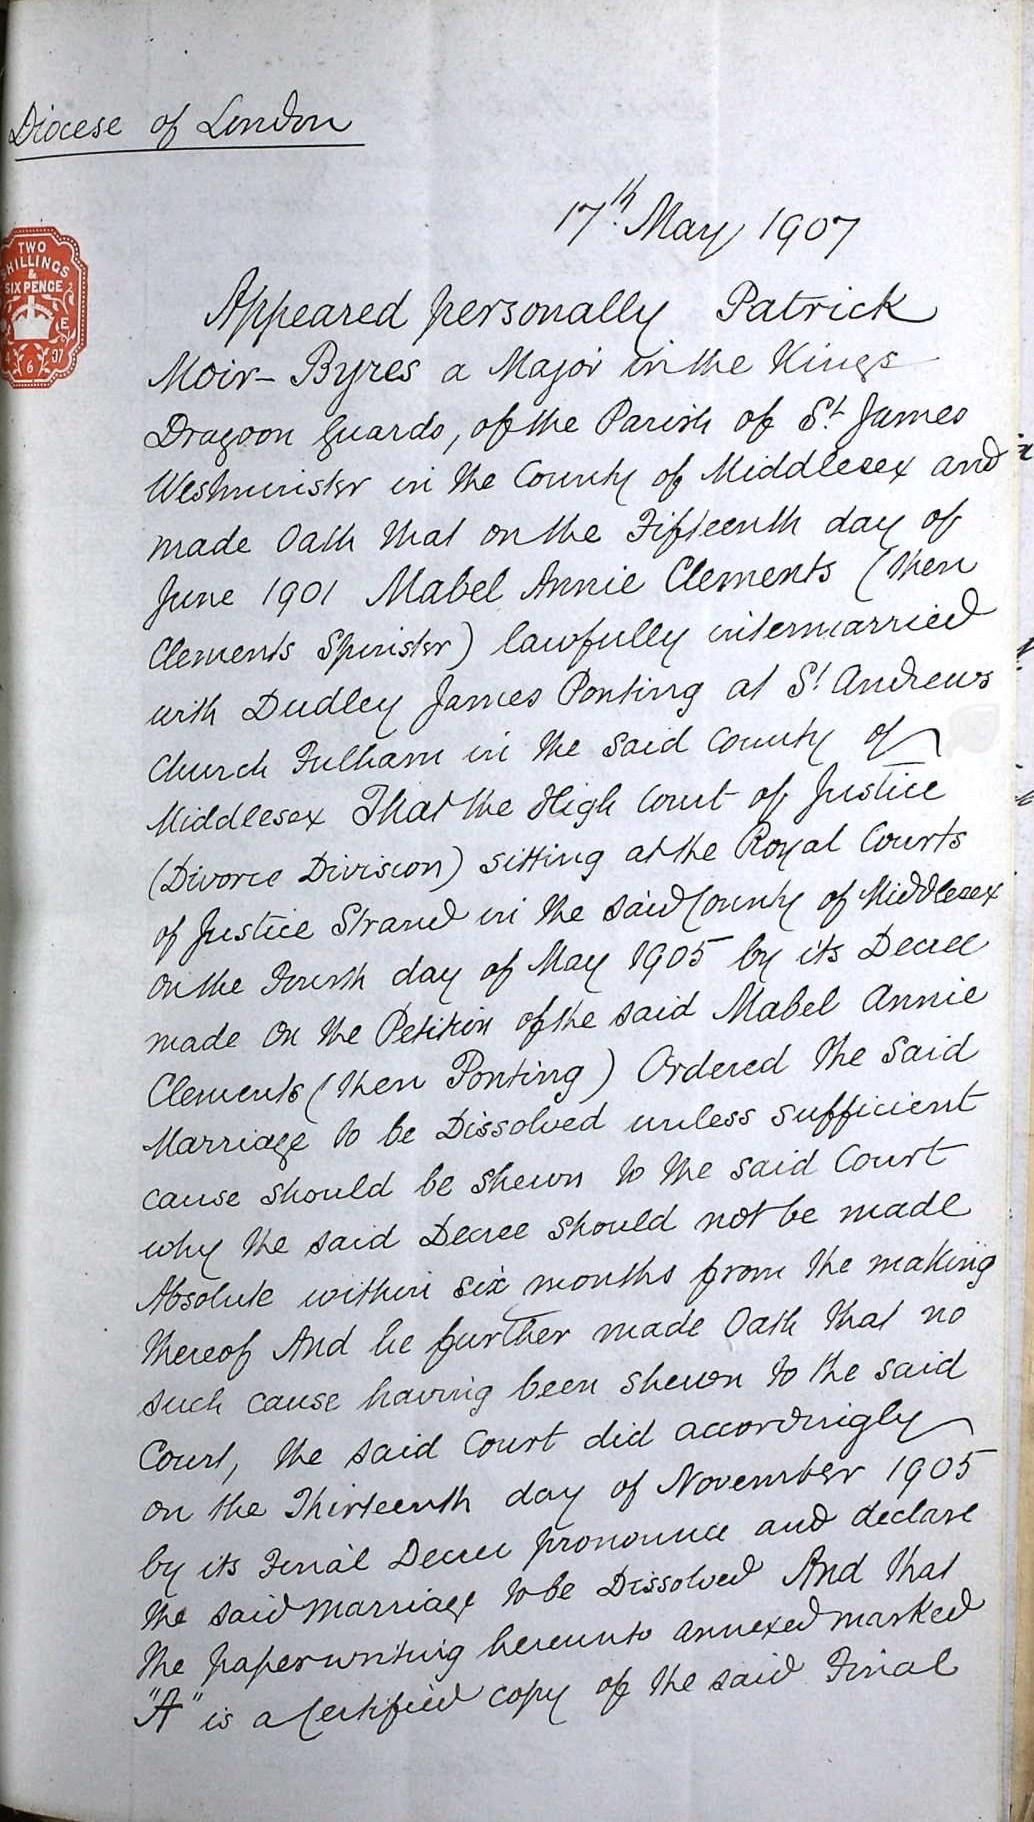 Diocese of London
17th May 1907
TWO
SHILLINGS
&
SIX PENCE
E
6 07
Appeared personally Patrick
Moir-Byres a Major in the Kings
Dragoon Guards, of the Parish of St James
Westminster in the County of Middlesex and
made Oath that on the Fifteenth day of
June 1901 Mabel Annie Clements (then
Clements Spinster) lawfully intermarried
with Dudley James Ponting at St Andrews
Church Fulham in the said County of
Middlesex That the High Court of Justice
(Divorce Division) sitting at the Royal Courts
of Justice Strand in the said County of Middlesex
on the Fourth day of May 1905 by its Decree
made on the Petition of the said Mabel Annie
Clements (then Ponting) Ordered the said
Marriage to be Dissolved unless sufficient
cause should be shewn to the said Court
why the said Decree should not be made
Absolute within six months from the making
thereof And he further made Oath that no
such cause having been shewn to the said
Court, the said Court did accordingly
on the Thirteenth day of November 1905
by its Final Decree pronounce and declare
the said Marriage to be Dissolved And that
the paper writing hereunto annexed marked
"A" is a Certified copy of the said Final